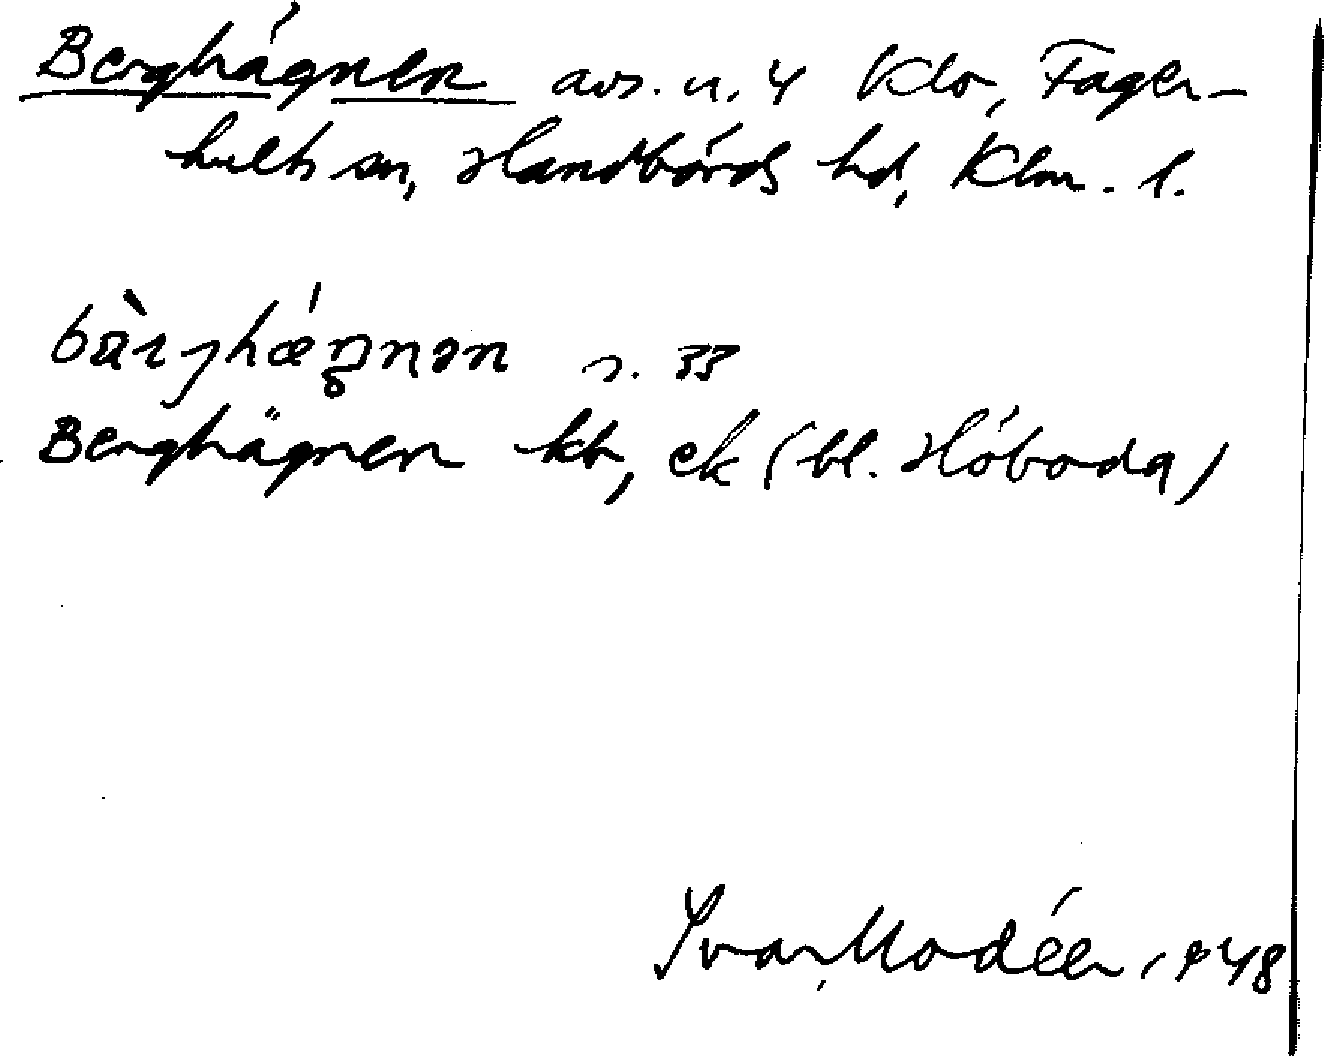 Berghägnen avs. u. 4 Klo, Fager-
hults sn, Handbörds hd, Klm. l.
bàrȷhǽŋnən s. 33
Berghägnen kb, ek (bl. Höboda)
Ivar Modéer 1948